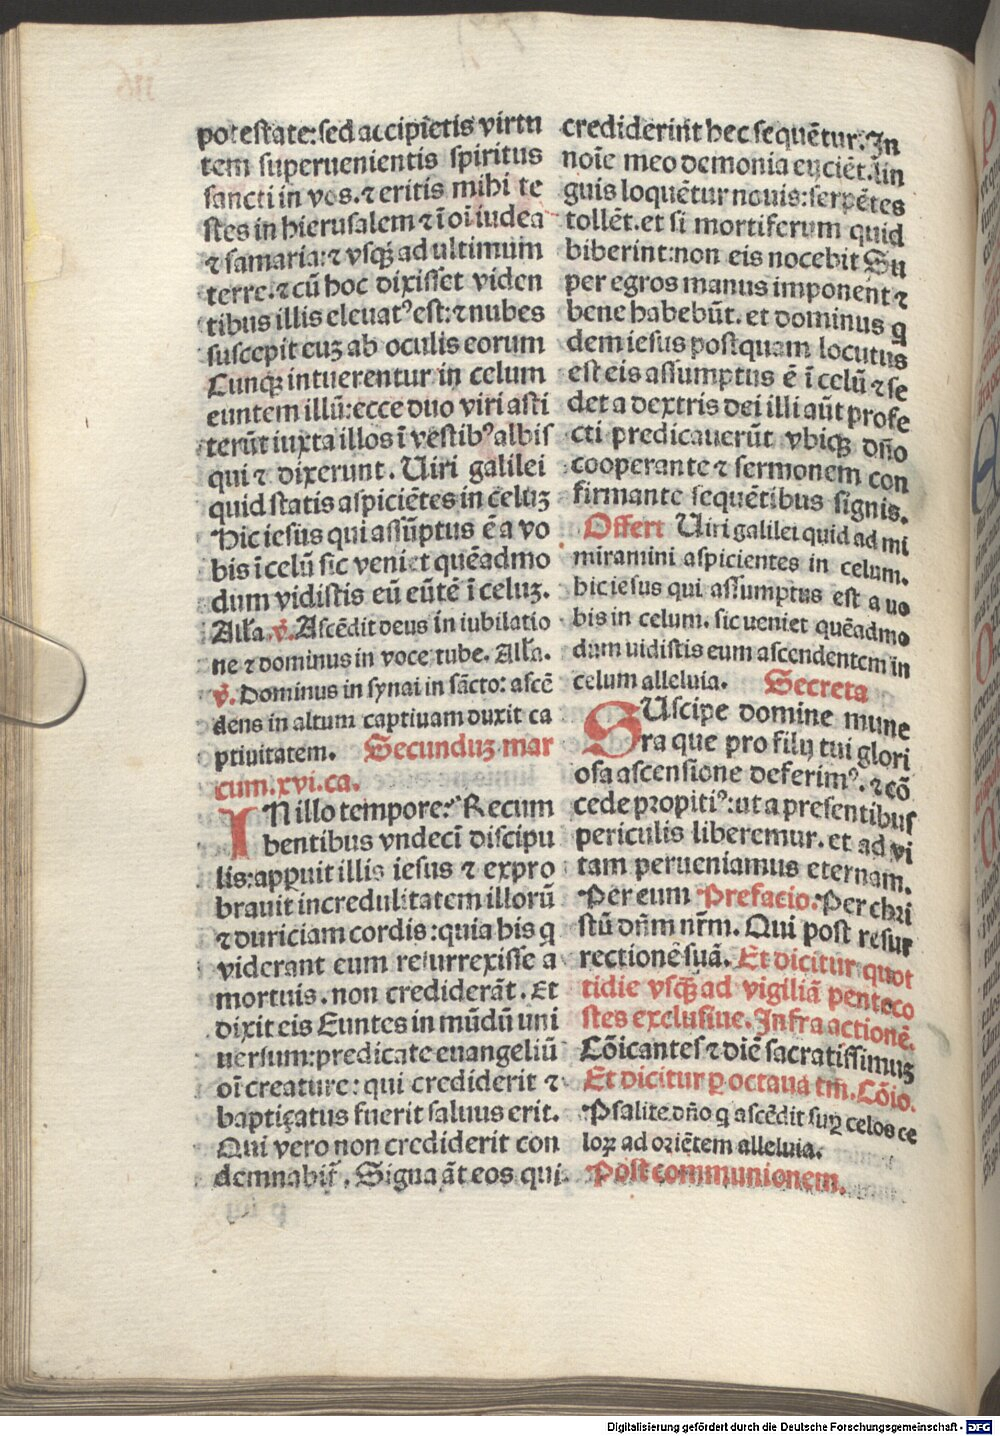 potestate:sed accipietis virtu
tem superuenientis spiritus
sancti in vos.⁊ eritis mihi te
stes in hierusalem ⁊ ī oī iudea
⁊ samaria:⁊ vsqꝫ ad ultimum
terre.⁊ cū hoc dixisset viden
tibus illis eleuatꝰ est:⁊ nubes
suscepit euꝫ ab oculis eorum
Cunqꝫ intuerentur in celum
euntem illū:ecce duo viri asti
terūt iuxta illos ī vestibꝰ albis
qui ⁊ dixerunt. Uiri galilei
quid statis aspiciētes in celuꝫ
Hic iesus qui assūptus ē a vo
bis ī celū sic veniet quēadmo
dum vidistis eū eūtē ī celuꝫ.
Alla. v̄. Ascēdit deus in iubilatio
ne ⁊ dominus in voce tube. Alla.
v̄. Dominus in synai in sācto: ascē
dens in altum captiuam duxit ca
ptiuitatem. Secunduꝫ mar
cum.xvi.ca.
IN illo tempore: Recum
bentibus vndecī discipu
lis:apꝑuit illis iesus ⁊ expro
brauit incredulitatem illorū
⁊ duriciam cordis:quia his q
viderant eum resurrexisse a
mortuis.non crediderāt. Et
dixit eis Euntes in mūdū uni
uersum:predicate euangeliū
oī creature: qui crediderit ⁊
baptiçatus fuerit saluus erit.
Qui vero non crediderit con
demnabit̄. Signa āt eos qui
crediderīt hec sequētur. In
noīe meo demonia eyciēt.lin
guis loquētur nouis:serpētes
tollēt.et si mortiferum quid
biberint:non eis nocebit Su
per egros manus imponent ⁊
bene habebūt. et dominus q
dem iesus postquam locutus
est eis assumptus ē ī celū ⁊ se
det a dextris dei illi aūt profe
cti predicauerūt vbiqꝫ dn̄o
cooperante ⁊ sermonem con
firmante sequētibus signis.
Offert Uiri galilei quid ad mi
miramini aspicientes in celum.
hic iesus qui assumptus est a uo
bis in celum. sic ueniet quēadmo
dum uidistis eum ascendentem in
celum alleluia. Secreta
SUscipe domine mune
ra que pro filij tui glori
osa ascensione deferimꝰ. ⁊ cō
cede propitiꝰ:ut a presentibus
periculis liberemur. et ad vi
tam perueniamus eternam.
Per eum Prefacio. Per chri
stū dn̄m nr̄m. Qui post resur
rectionē suā. Et dicitur quot
tidie vsqꝫ ad vigiliā penteco
stes exclusiue. Infra actionē.
Cōicantes ⁊ diē sacratissimuꝫ
Et dicitur ꝑ octaua tm̄. Cōio.
Psalite dn̄o q ascēdit suꝑ celos ce
loꝝ ad oriētem alleluia.
Post communionem.
Digitalisierung gefördert durch die Deutsche Forschungsgemeinschaft - DFG